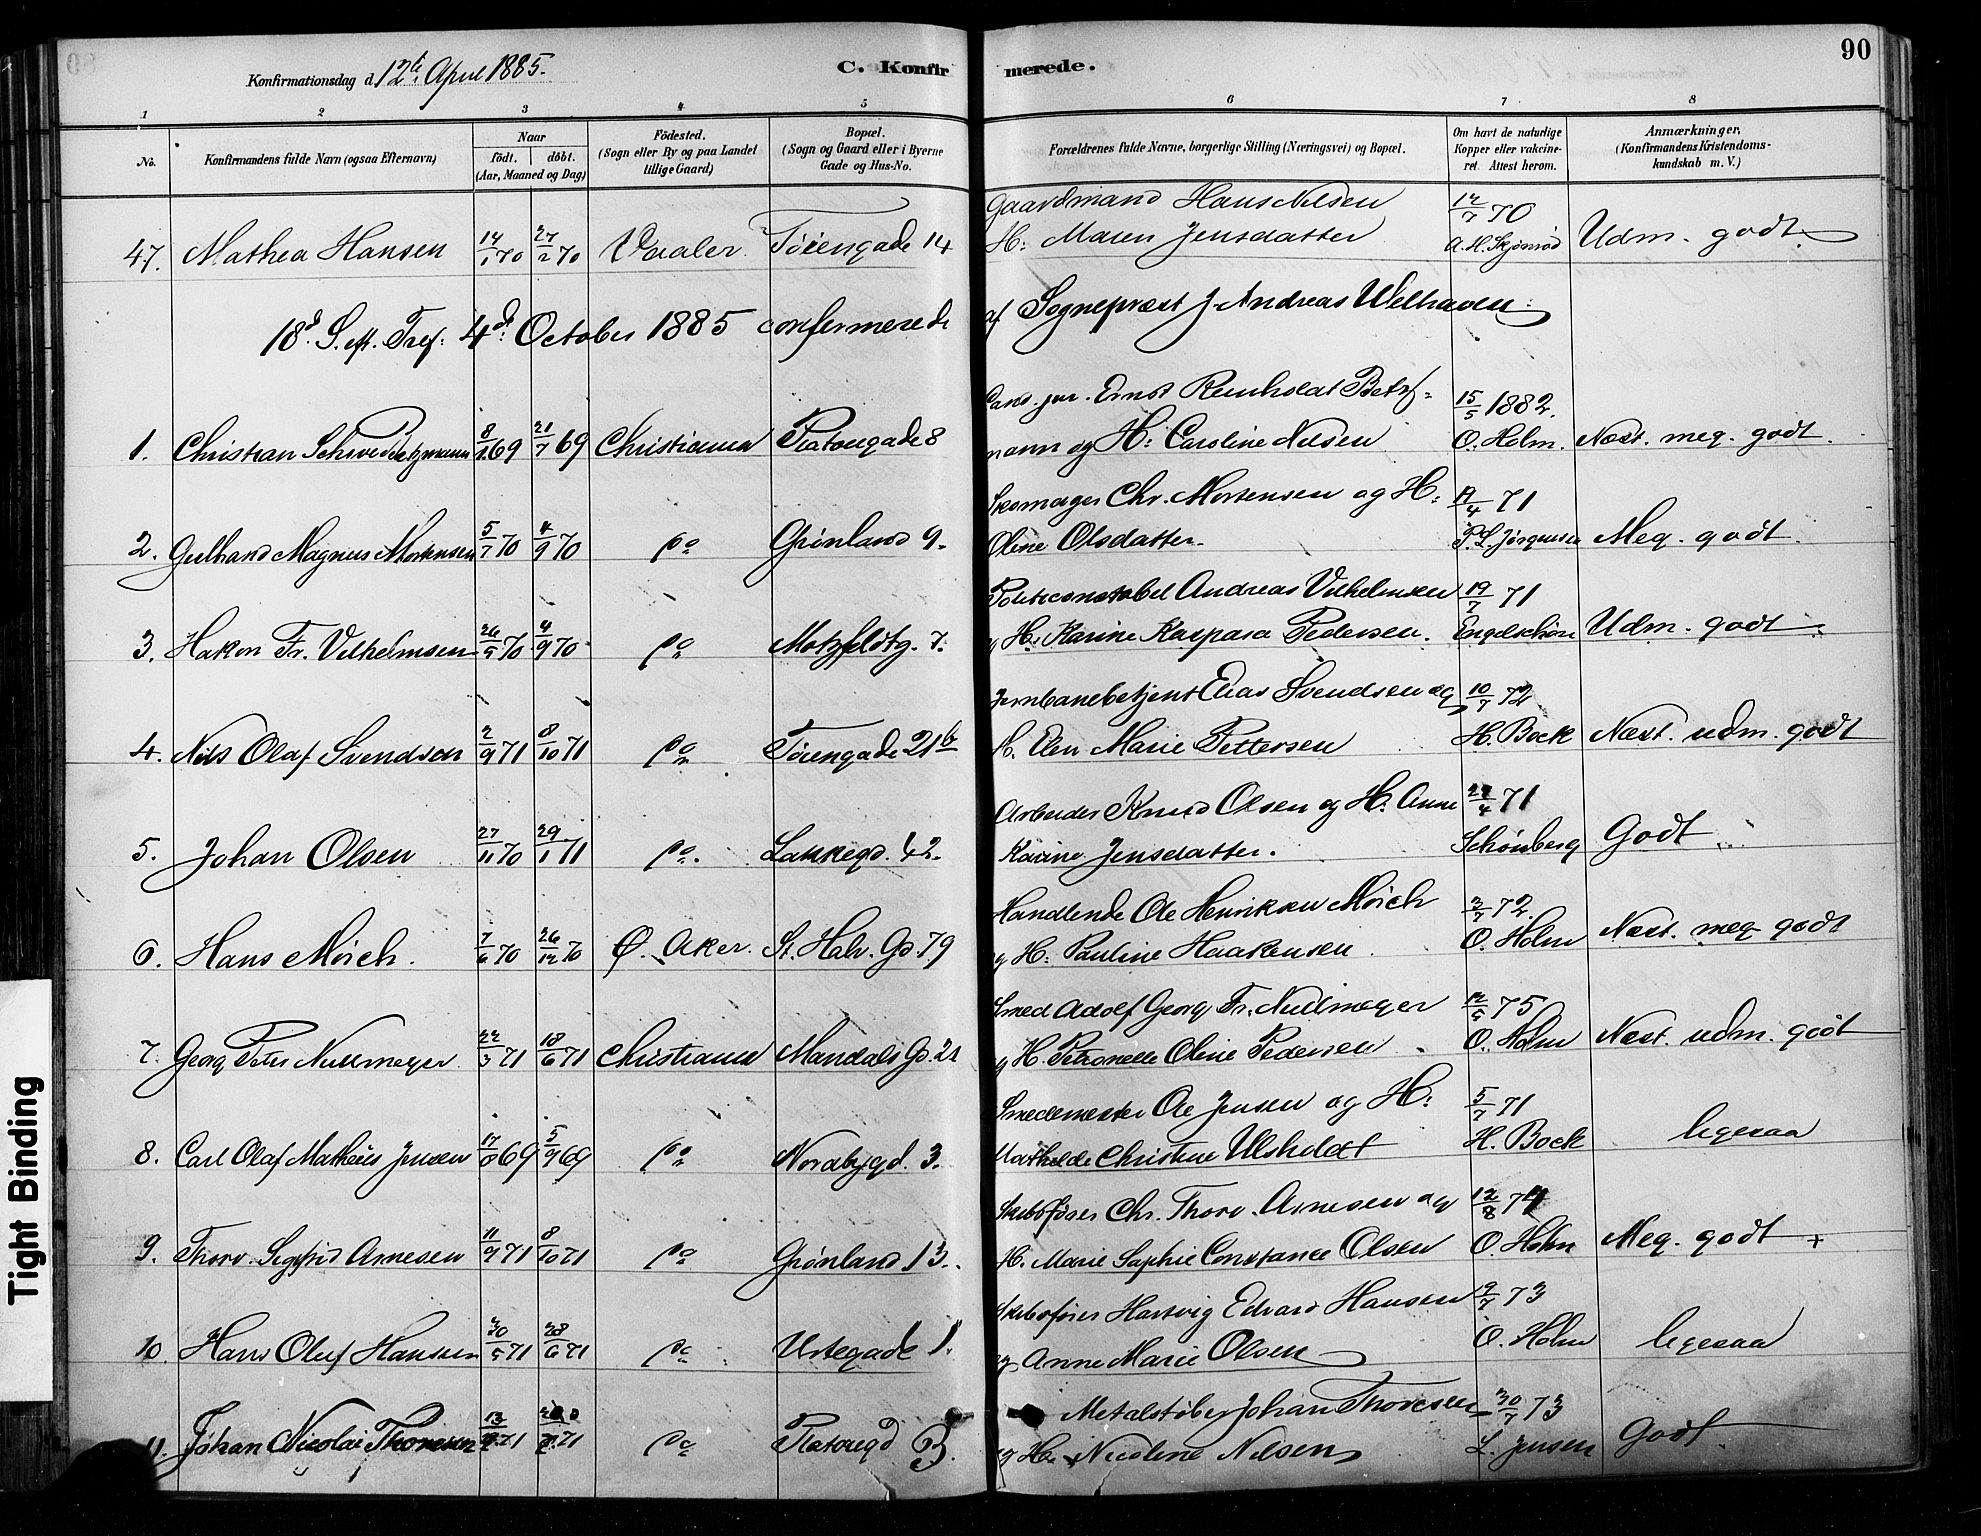 90
Konfirmationsdag d. 12te April 1885.
C. Konfirmerede.
1 2 3 4 5 6 7 8
No.
Konfirmandens fulde Navn (ogsaa Efternavn).
Naar
födt. döbt.
(Aar, Maaned og Dag)
Födested.
(Sogn eller By og paa Landet
tillige Gaard)
Bopæl.
(Sogn og Gaard eller i Byerne
Gade og Hus-No.
Forældrenes fulde Navne, borgerlige Stilling (Næringsvei) og Bopæl.
Om havt de naturlige
Kopper eller vakcine-
ret. Attest herom.
Anmærkninger,
(Konfirmandens Kristendoms-
kundskab m. V.)
Gaardmand Hans Nilsen 14/7 70
47. Mathea Hansen 14/1 70 27/2 70 Vaaler Töiengade 14 H: Maren Jensdatter A. H. Skjönnöd Udm. godt
18d. S. eft. Tref: 4d. October 1885 confirmerede af Sognepræst J. Andreas Welhaven
Cand. jur. Ernst Reinholdt Betz- 15/5 1882.
1. Christian Schwed Betzmann 8/1 69 21/7 69 Christiania Platougade 8 mann og H: Caroline Nilsen O. Holm. Næst. meg. godt.
Skomager Chr. Mortensen og H: 19/4 71
2. Gulbrand Magnus Mortensen 5/7 70 4/9 70 do Grønland 9. Oline Olsdatter. P. L. Jørgensen Meg. godt.
Politiconstabel Andreas Vilhelmsen 19/7 71
3. Hakon Fr. Vilhelmsen 26/5 70 4/9 70 do Motzfeldtg. 7. og H. Karine Kaspara Pedersen. Engelschiøn Udm. godt
Jernbanebetjent Elias Svendsen og 10/7 72
4. Nils Olaf Svendsen 2/9 71 8/10 71 do Töiengade 21b H. Elen Marie Pettersen H. Bock Næst. udm. godt
Arbeider Knud Olsen og H. Anne 27/4 71
5. Johan Olsen 27/11 70 29/1 71 do. Lakkegd. 42. Karine Jensdatter. Schönberg Godt
Handlende Ole Henriksen Mörch 3/7 72.
6. Hans Mörch. 7/6 70 26/12 70 Ø. Aker. St. Halv. Gd. 79 og H: Pauline Haakensen. O. Holm Næst. meg godt
Smed Adolf Georg Fr. Nullmeyer 12/5 75
7. Georg Peter Nullmeyer 22/3 71 18/6 71 Christiania Mandals Gd. 21 og H. Petronelle Oline Pedersen O. Holm Næst. udm. godt
Smedemester Ole Jensen og H: 5/7 71
8. Carl Olaf Matheus Jensen 17/8 69 5/9 69 do Nordbygd. 3. Mathilde Christine Ulsholdt H. Bock ligesaa
Skibsfører Chr. Thorv. Arnesen og 12/8 74
9. Thorv. Sigfrid Arnesen 11/9 71 8/10 71 do Grønland 13. H. Marie Sophie Constance Olsen O. Holm Meg. godt +
Skibsfører Hartvig Edvard Hansen 9/7 73
10. Hans Oluf Hansen 30/5 71 28/6 71 do Urtegade 1. og Anne Marie Olsen O. Holm ligesaa
Metalstøber Johan Thoresen 30/7 73
11. Johan Nicolai Thoresen 71 71 do Platougd 3. og H. Nicoline Nilsen L. Jensen Godt
Tight Binding